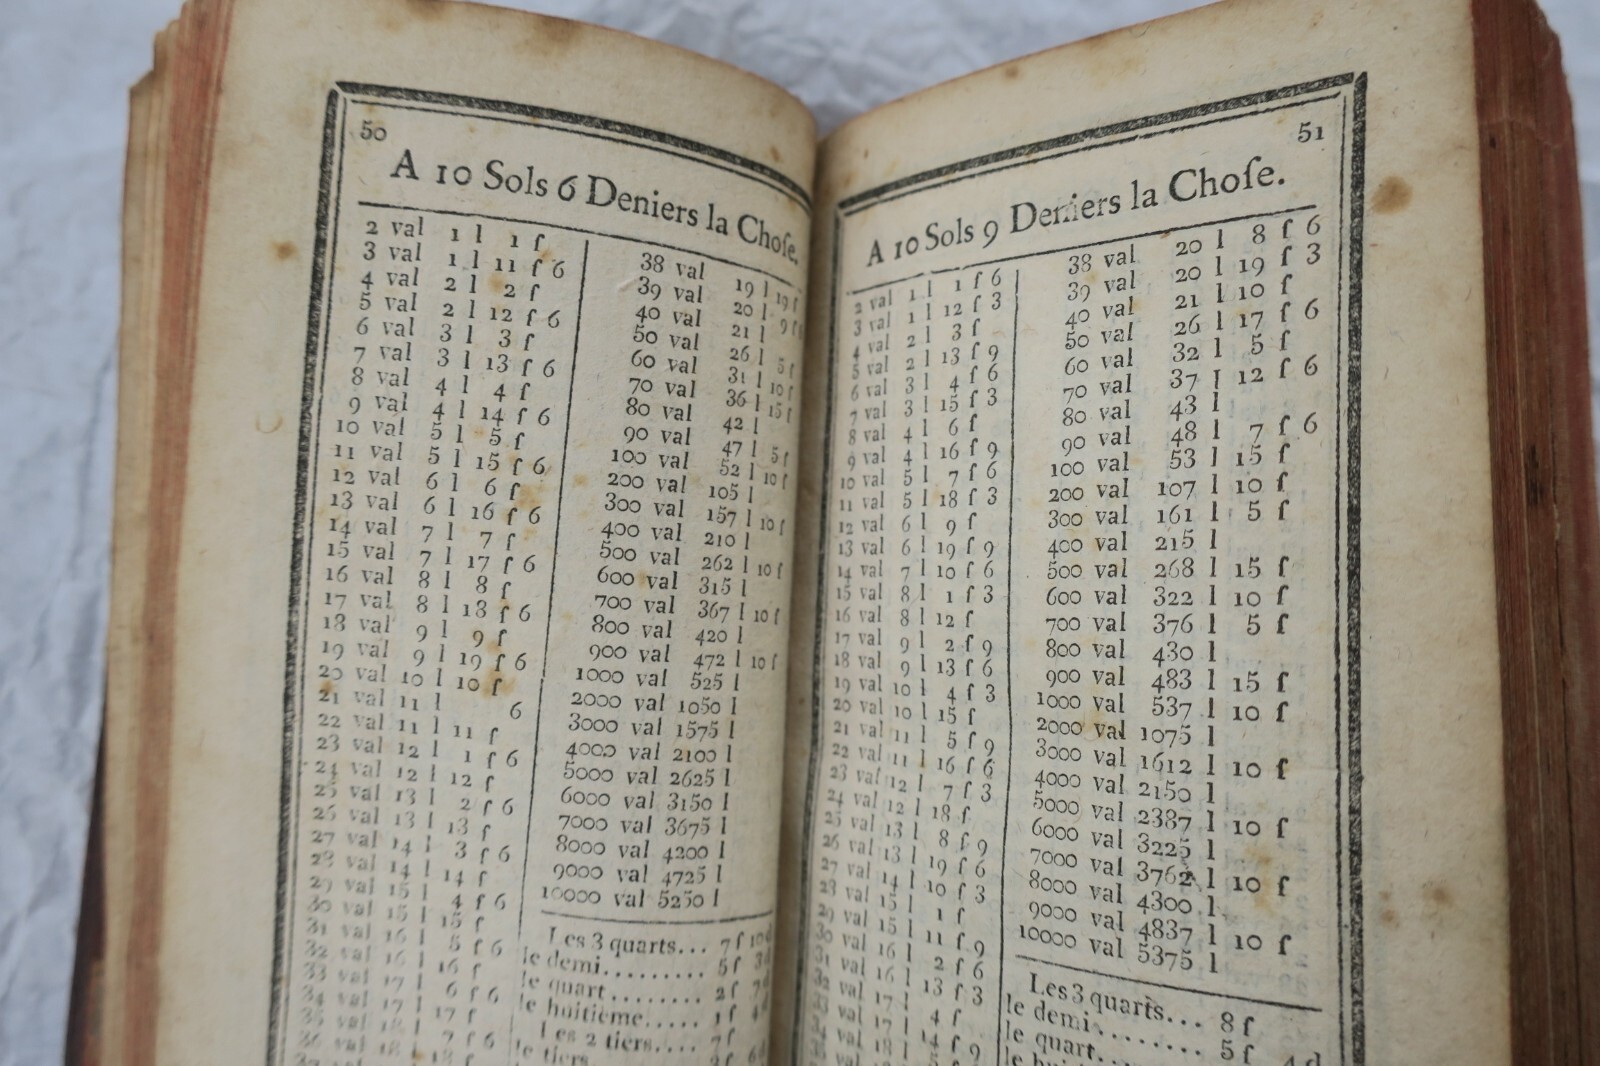 50
A 10 Sols 6 Deniers la Choſe.
2 val 1 l 1 ſ
3 val 1 l 11 ſ 6
4 val 2 l 2 ſ
5 val 2 l 12 ſ 6
6 val 3 l 3 ſ
7 val 3 l 13 ſ 6
8 val 4 l 4 ſ
9 val 4 l 14 ſ 6
10 val 5 l 5 ſ
11 val 5 l 15 ſ 6
12 val 6 l 6 ſ
13 val 6 l 16 ſ 6
14 val 7 l 7 ſ
15 val 7 l 17 ſ 6
16 val 8 l 8 ſ
17 val 8 l 18 ſ 6
18 val 9 l 9 ſ
19 val 9 l 19 ſ 6
20 val 10 l 10 ſ
21 val 11 l 6
22 val 11 l 11 ſ
23 val 12 l 1 ſ 6
24 val 12 l 12 ſ
25 val 13 l 2 ſ 6
26 val 13 l 13 ſ
27 val 14 l 3 ſ 6
28 val 14 l 14 ſ
29 val 15 l 4 ſ 6
30 val 15 l 15 ſ
31 val 16 l 5 ſ 6
32 val 16 l 16 ſ
33 val 17 l 6 ſ 6
34 val 17 l 17 ſ
35 val 18 l 7 ſ 6
36 val 18 l 18 ſ
38 val 19 l 19 ſ
39 val 20 l 9 ſ
40 val 21 l
50 val 26 l 5 ſ
60 val 31 l 10 ſ
70 val 36 l 15 ſ
80 val 42 l
90 val 47 l 5 ſ
100 val 52 l 10 ſ
200 val 105 l
300 val 157 l 10 ſ
400 val 210 l
500 val 262 l 10 ſ
600 val 315 l
700 val 367 l 10 ſ
800 val 420 l
900 val 472 l 10 ſ
1000 val 525 l
2000 val 1050 l
3000 val 1575 l
4000 val 2100 l
5000 val 2625 l
6000 val 3150 l
7000 val 3675 l
8000 val 4200 l
9000 val 4725 l
10000 val 5250 l
Les 3 quarts... 7 ſ 10 d
le demi......... 5 ſ 3 d
le quart........ 2 ſ 7 d
le huitième..... 1 ſ 4 d
Les 2 tiers.... 7 ſ
le tiers
51
A 10 Sols 9 Deniers la Choſe.
2 val 1 l 1 ſ 6
3 val 1 l 12 ſ 3
4 val 2 l 3 ſ
5 val 2 l 13 ſ 9
6 val 3 l 4 ſ 6
7 val 3 l 15 ſ 3
8 val 4 l 6 ſ
9 val 4 l 16 ſ 9
10 val 5 l 7 ſ 6
11 val 5 l 18 ſ 3
12 val 6 l 9 ſ
13 val 6 l 19 ſ 9
14 val 7 l 10 ſ 6
15 val 8 l 1 ſ 3
16 val 8 l 12 ſ
17 val 9 l 2 ſ 9
18 val 9 l 13 ſ 6
19 val 10 l 4 ſ 3
20 val 10 l 15 ſ
21 val 11 l 5 ſ 9
22 val 11 l 16 ſ 6
23 val 12 l 7 ſ 3
24 val 12 l 18 ſ
25 val 13 l 8 ſ 9
26 val 13 l 19 ſ 6
27 val 14 l 10 ſ 3
28 val 15 l 1 ſ
29 val 15 l 11 ſ 9
30 val 16 l 2 ſ 6
31 val 16 l 13 ſ 3
32 val 17 l 4 ſ
33 val 17 l 14 ſ 9
34 val 18 l 5 ſ
38 val 20 l 8 ſ 6
39 val 20 l 19 ſ 3
40 val 21 l 10 ſ
50 val 26 l 17 ſ 6
60 val 32 l 5 ſ
70 val 37 l 12 ſ 6
80 val 43 l
90 val 48 l 7 ſ 6
100 val 53 l 15 ſ
200 val 107 l 10 ſ
300 val 161 l 5 ſ
400 val 215 l
500 val 268 l 15 ſ
600 val 322 l 10 ſ
700 val 376 l 5 ſ
800 val 430 l
900 val 483 l 15 ſ
1000 val 537 l 10 ſ
2000 val 1075 l
3000 val 1612 l 10 ſ
4000 val 2150 l
5000 val 2387 l 10 ſ
6000 val 3225 l
7000 val 3762 l 10 ſ
8000 val 4300 l
9000 val 4837 l 10 ſ
10000 val 5375 l
Les 3 quarts... 8 ſ
le demi......... 5 ſ 4 d
le quart....